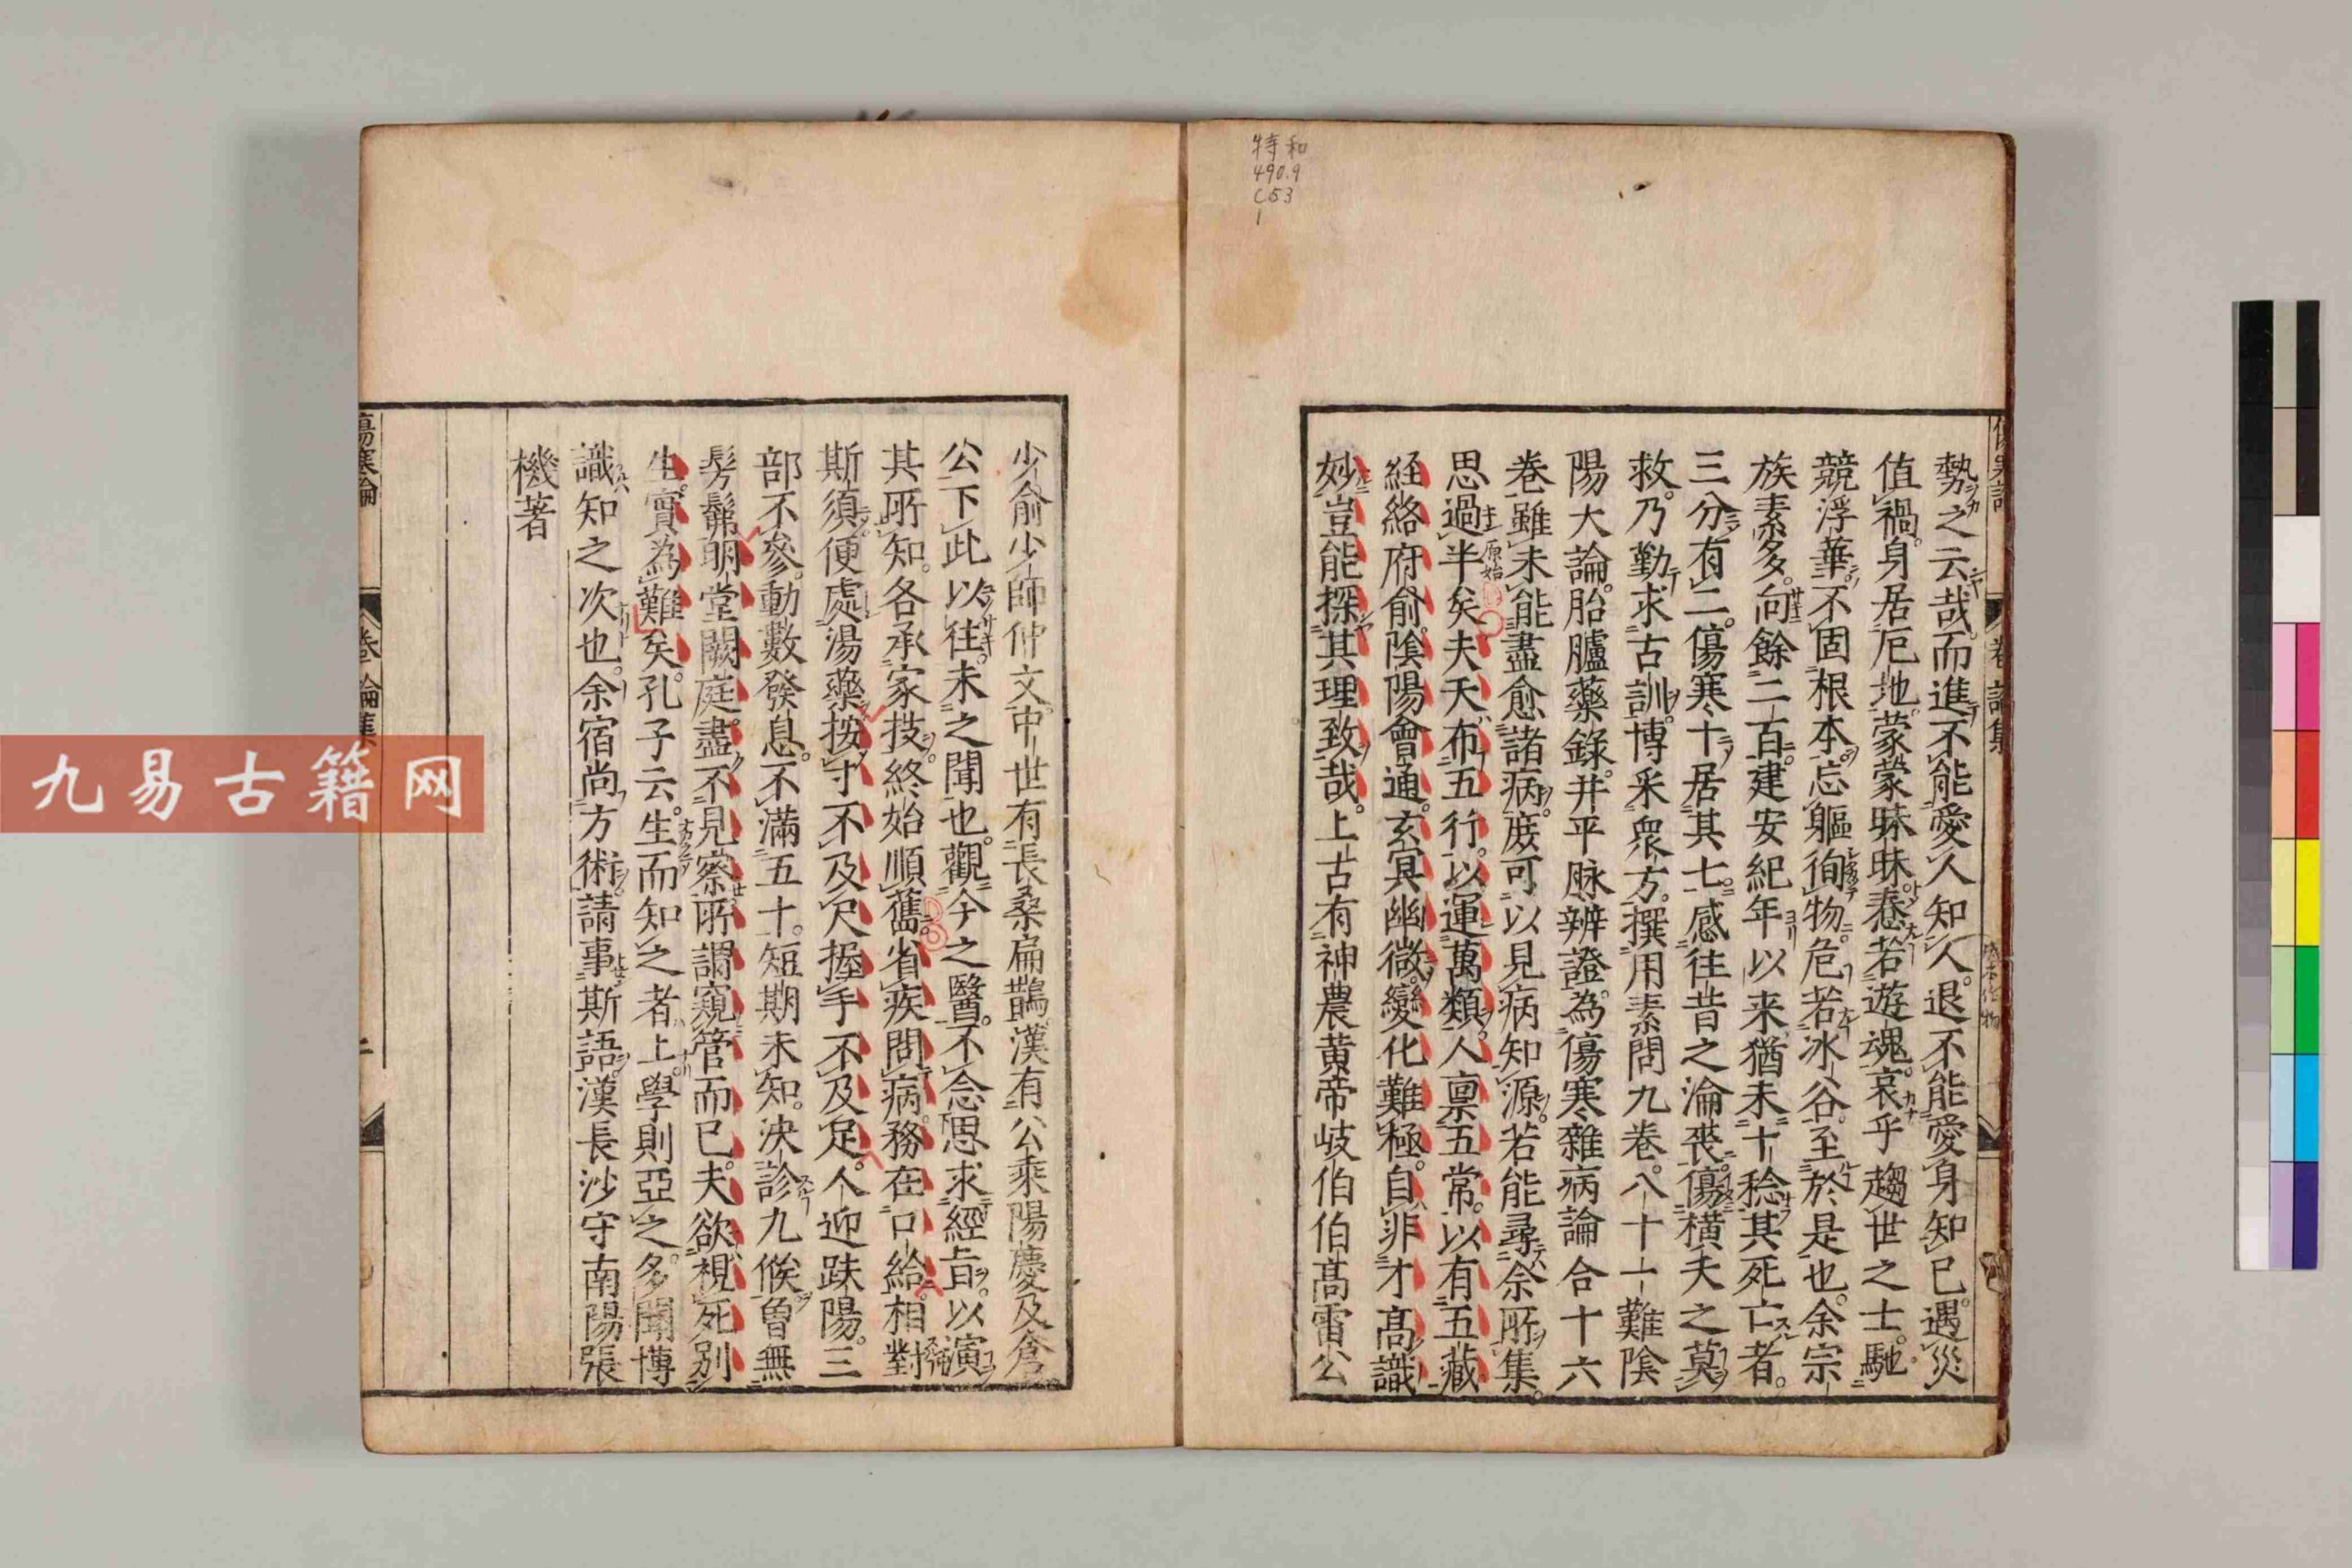 特和
490.9
C53
1
勢之云哉而進不能愛人知人退不能愛身知己遇災
值禍身居厄地蒙蒙昧昧惷若遊魂哀乎趨世之士馳
競浮華不固根本忘軀徇物危若冰谷至於是也余宗
族素多向餘二百建安紀年以来猶未十稔其死亡者
三分有二傷寒十居其七感往昔之淪喪傷橫夭之莫
救乃勤求古訓博采衆方撰用素問九卷八十一難陰
陽大論胎臚藥錄并平脉辨證為傷寒雜病論合十六
卷雖未能盡愈諸病庶可以見病知源若能尋余所集
思過半矣夫天布五行以運萬類人禀五常以有五藏
経絡府俞陰陽會通玄冥幽微變化難極自非才高識
妙豈能探其理致哉上古有神農黃帝岐伯伯高雷公
少俞少師仲文中世有長桑扁鵲漢有公乘陽慶及倉
公下此以往未之聞也觀今之醫不念思求經旨以演
其所知各承家技終始順舊省疾問病務在口給相對
斯須便處湯藥按寸不及尺握手不及足人迎趺陽三
部不參動數發息不滿五十短期未知决診九候曽無
髣髴明堂闕庭盡不見察所謂窺管而已夫欲視死别
生實為難矣孔子云生而知之者上學則亞之多聞博
識知之次也余宿尚方術請事斯語漢長沙守南陽張
機著
傷寒論 卷 論集
九易古籍网